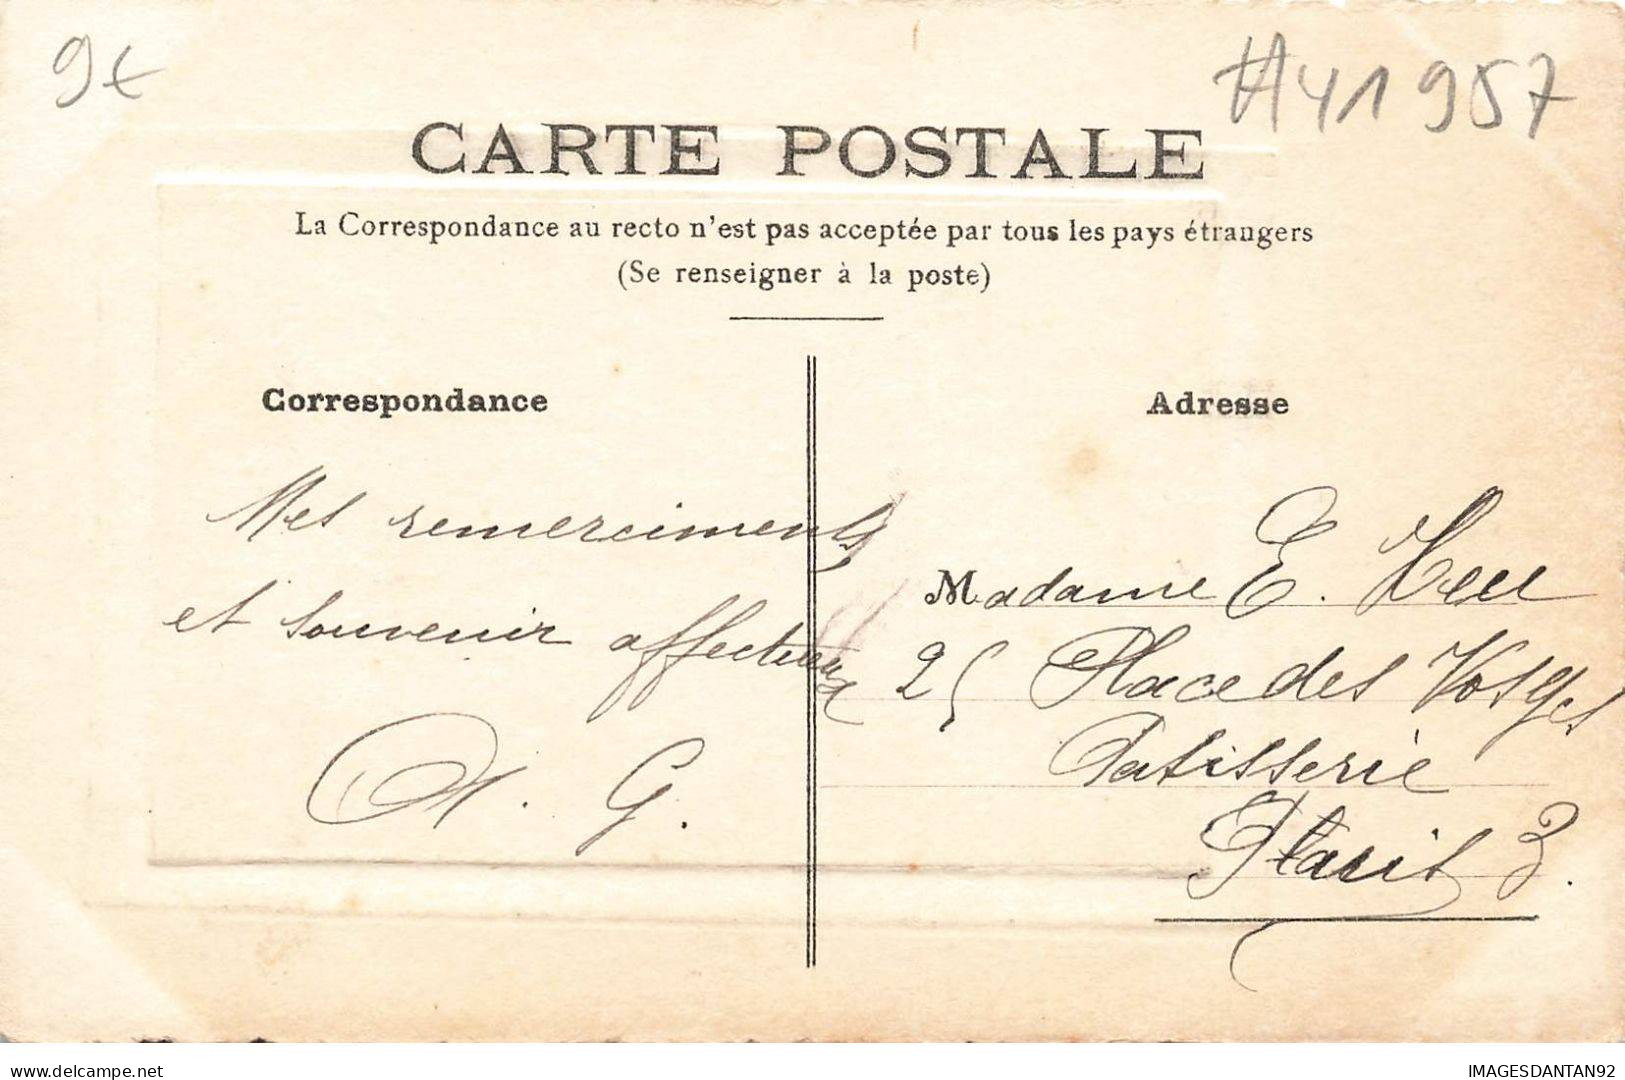 9€
#41957
CARTE POSTALE
La Correspondance au recto n'est pas acceptée par tous les pays étrangers
(Se renseigner à la poste)
Correspondance
Mes remerciements
et souvenir affectueux
A. G.
Adresse
Madame E.
25 Place des Vosges
Patisserie
Paris 3.
www.delcampe.net
IMAGESDANTAN92